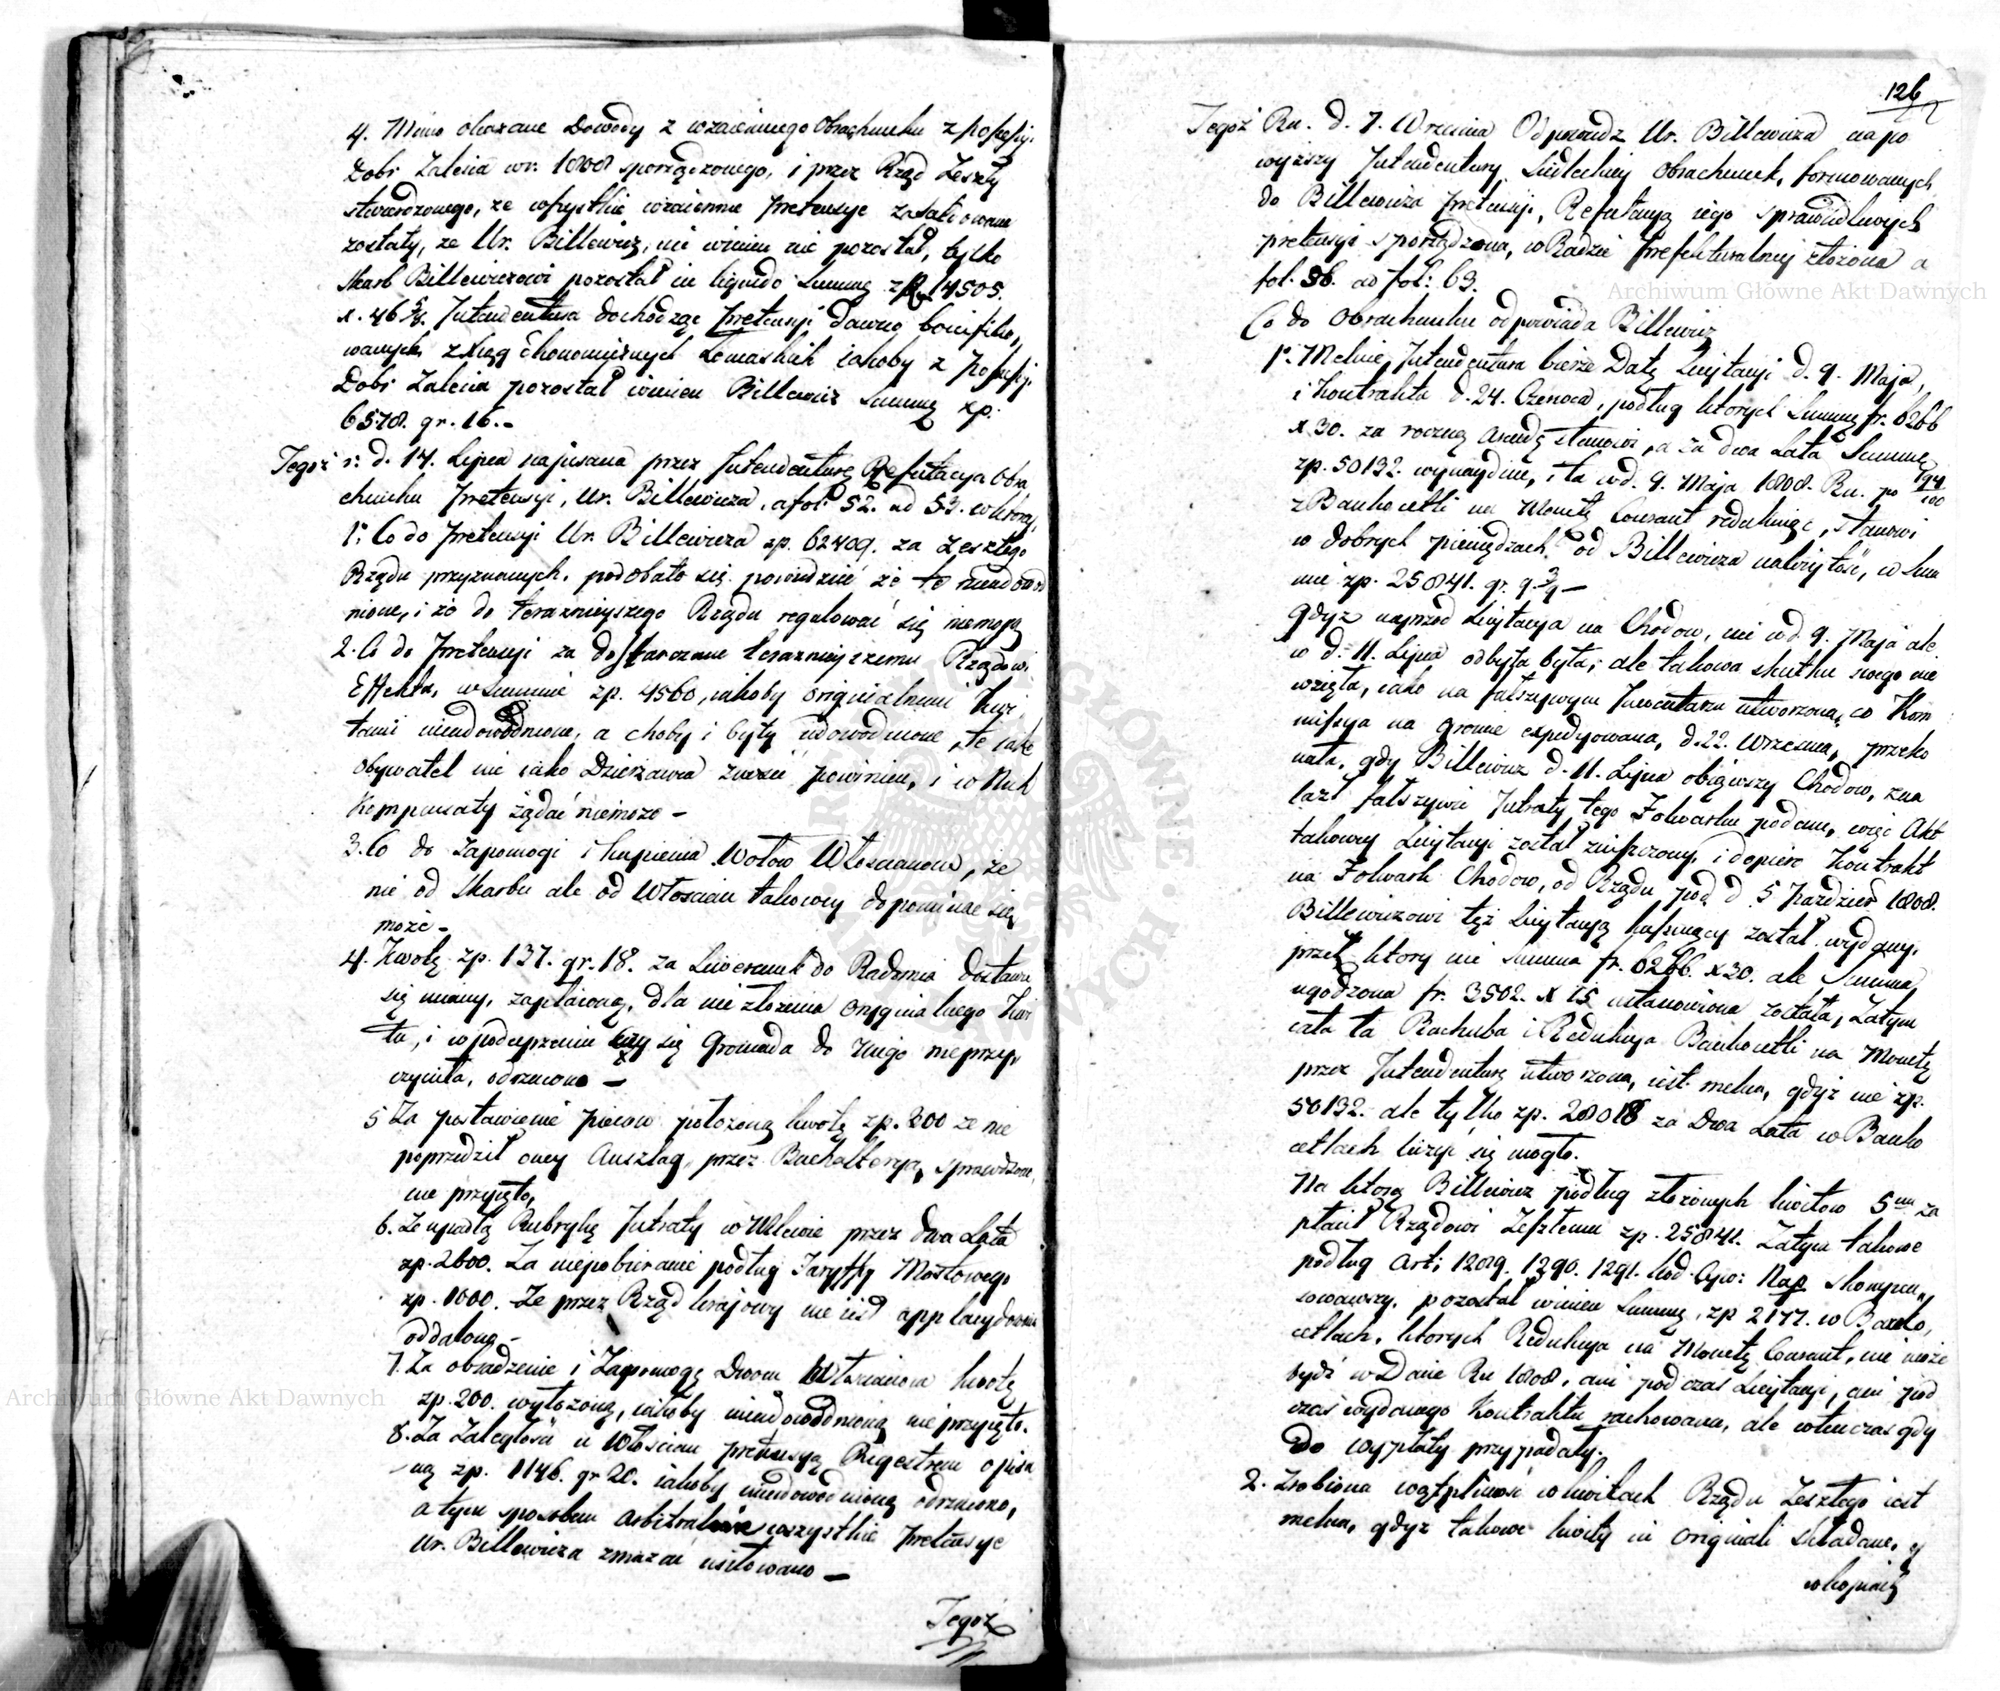 4. Mimo okazane Dowody z wzaiemnego Obrachunku z possessyi
Dobr Zalesia w r. 1808 sporządzonego, i przez Rząd Zeszły
stwierdzonego, ze wszystkie wzaiemne pretensye zasalwowane
zostały, ze Ur. Billewicz, nic winien nie pozostał, tylko
Skarb Billewiczowi pozostał in liquido Summę zp. 14505.
x. 46 5/8. Intendentura dochodząc pretensyi dawno bonifiko„
wanych z Xiąg Ekonomicznych Łomaskich iakoby z possessyi
Dobr Zalesia pozostał winien Billewicz Summę zp.
6578. gr. 16. –
Tegoż r: d. 17. Lipca napisana przez Intendenturę Refutacya Obra
chunku Pretensyi, Ur. Billewicza, a fol: 52. ad 53. w ktorey,
1: Co do pretensyi Ur. Billewicza zp. 62409. za Zeszłego
Rządu przyznanych, podobało się powiedzieć że te nieudowod
nione, i że do teraznieyszego Rządu regulować się niemogą
2. Co do Pretensyi za dostarczane teraznieyszemu Rządowi
Effekta, w Summie zp. 4560, iakoby originalnemi Kwi„
tami nieudowodnione, a choby i były udowodnione, te iako
obywatel nie iako Dzierzawca znosić powinien, i w Nich
Kompensaty żądać niemoże –
3. Co do zapomogi i kupienia Wołow Włoscianom, że
nie od Skarbu ale od Włoscian takowey dopominać się
może –
4. Kwotę zp. 137. gr. 18. za Liwerunek do Radzynia dostawić
się miany, zapłaconą, dla nie złożenia Originalnego Kwi
tu, i w podeyrzeniu czy się Gromada do tego nieprzy„
czyniła, odrzucono –
5 Za postawienie piecow położoną kwotę zp. 300 ze nie
poprzedził onej Auszlag, przez Buchalteryą, sprawdzone,
nie przyięto,
6. Ze upadłą Rubrykę Intraty w Mlewie przez dwa Lata
zp. 2600. Za niepobieranie podług Taryffy Mostowego
zp. 1000. Ze przez Rząd kraiowy nie iest applacydowane
oddalono –
7. Za obsadzenie i Zapomogę Dwom Włoscianom kwotę
zp. 200. wyłożoną, iakoby nieudowodnioną nie przyięto.
8. Za Zaległość u Włoscian pretensyą Regestrem opisa
ną zp. 1146. gr 20. iakoby nieudowodnioną odrzucono,
a tym sposobem arbitralnie wszystkie pretensye
Ur. Billewicza zmazać usiłowano –
Tegoż
126
Tegoż Ru. d. 7. Wrzesnia Odpowiedz Ur. Billewicza na po
wyższy Intendentury Siedleckiey Obrachunek, formowanych
do Billewicza pretensyi, Refutacyą iego sprawiedliwych
pretensyi sporządzona, w Radzie Prefekturalney złożona a
fol. 56. ad fol: 63.
Co do Obrachunku odpowiada Billewicz
1: Mylnie Intendentura bierze Datę Licytacyi d. 9. Maja,
i Kontraktu d. 24. Czerwca, podług ktorych Summę fr. 6266
x 30. za roczną arendę stanowi, a za dwa Lata Summę
zp. 50132. wynayduie, i ta w d. 9. Maja 1808. Ru. po 194/100
z Bankocetli na Monetę Courant redukuiąc, stanowi
w dobrych pieniądzach od Billewicza należytość, w Sum
mie zp. 25841. gr. 9. 3/9 –
gdyż naprzod Licytacya na Chodow, nie w d. 9. Maja ale
w d. 11. Lipca odbyta była; ale takowa skutku swego nie
wzięła, iako na fałszywym Inwentarzu utworzona, co Kom
missya na gronie expedyowana, d. 22. Wrzesnia, przeko
nała, gdy Billewicz d. 11. Lipca obiąwszy Chodow, zna
lazł fałszywie Intraty tego Folwarku podane, więc Akt
takowey Licytacyi został zniszczony, i dopiero Kontrakt
na Folwark Chodow, od Rządu pod d. 5 Pazdzier 1808.
Billewiczowi tęż Licytacyą kassuiący został wydany,
przez ktory nie Summa fr. 6266. x 30. ale Summa
ugodzona fr. 3502. x 15 ustanowiona została, Zatym
cała ta Rachuba i Redukcya Bankocetli na Monetę
przez Intendenturę utworzona, iest mylna, gdyż nie zp.
50132. ale tylko zp. 28018 za Dwa Lata w Banko
cetlach liczyć się mogło.
Na ktorą Billewicz podług złożonych kwitow 5ciu za
płacił Rządowi Zeszłemu zp. 25841. Zatym takowe
podług Art; 1289. 1290. 1291. Kod. Cyw: Nap skompen„
sowawszy, pozostał winien Summę, zp 2177. w Banko„
cetlach, ktorych Redukcya na Monetę Courant, nie może
bydź w Dacie Ru 1808, ani podczas Licytacyi, ani pod
czas wydanego Kontraktu rachowana, ale wtenczas gdy
do wypłaty przypadały.
2. Zrobiona wątpliwość w kwitach Rządu Zeszłego iest
mylna, gdyż takowe kwity in originali składane, y
w kopiach
Archiwum Główne Akt Dawnych
Archiwum Główne Akt Dawnych